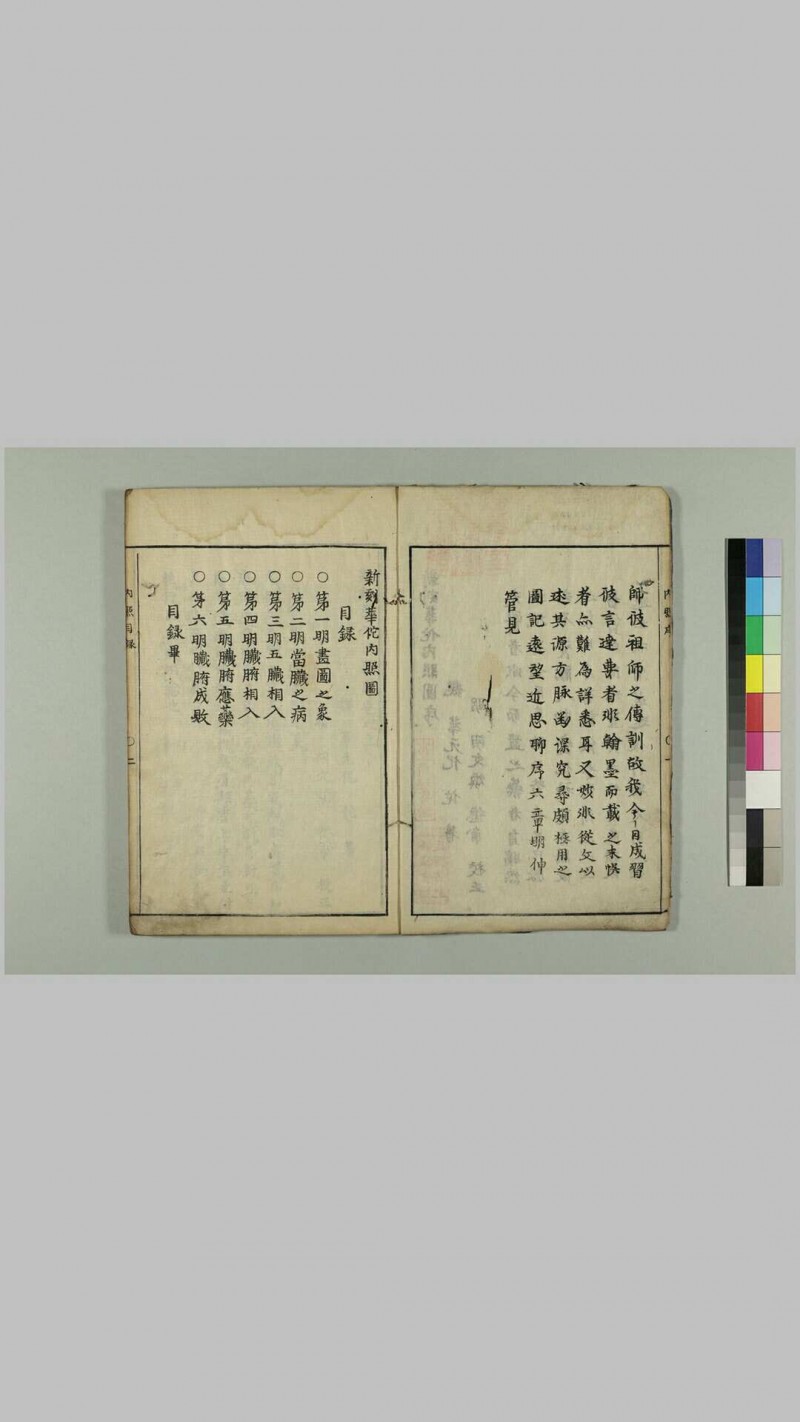 師彼祖師之傳訓故我今日成習
彼言達要者非翰墨而載之末悞
者亦難為詳悉耳又嫉非從文以
述其源方脉凾深究尋頗極用之
圖記遠望近思聊序六章明伸
管見
新刻華佗内照圖
目録
○第一明畫圖之象
○第二明當臟之病
○第三明五臟相入
○第四明臟腑相入
○第五明臟腑應藥
○第六明臟腑成敗
目録畢